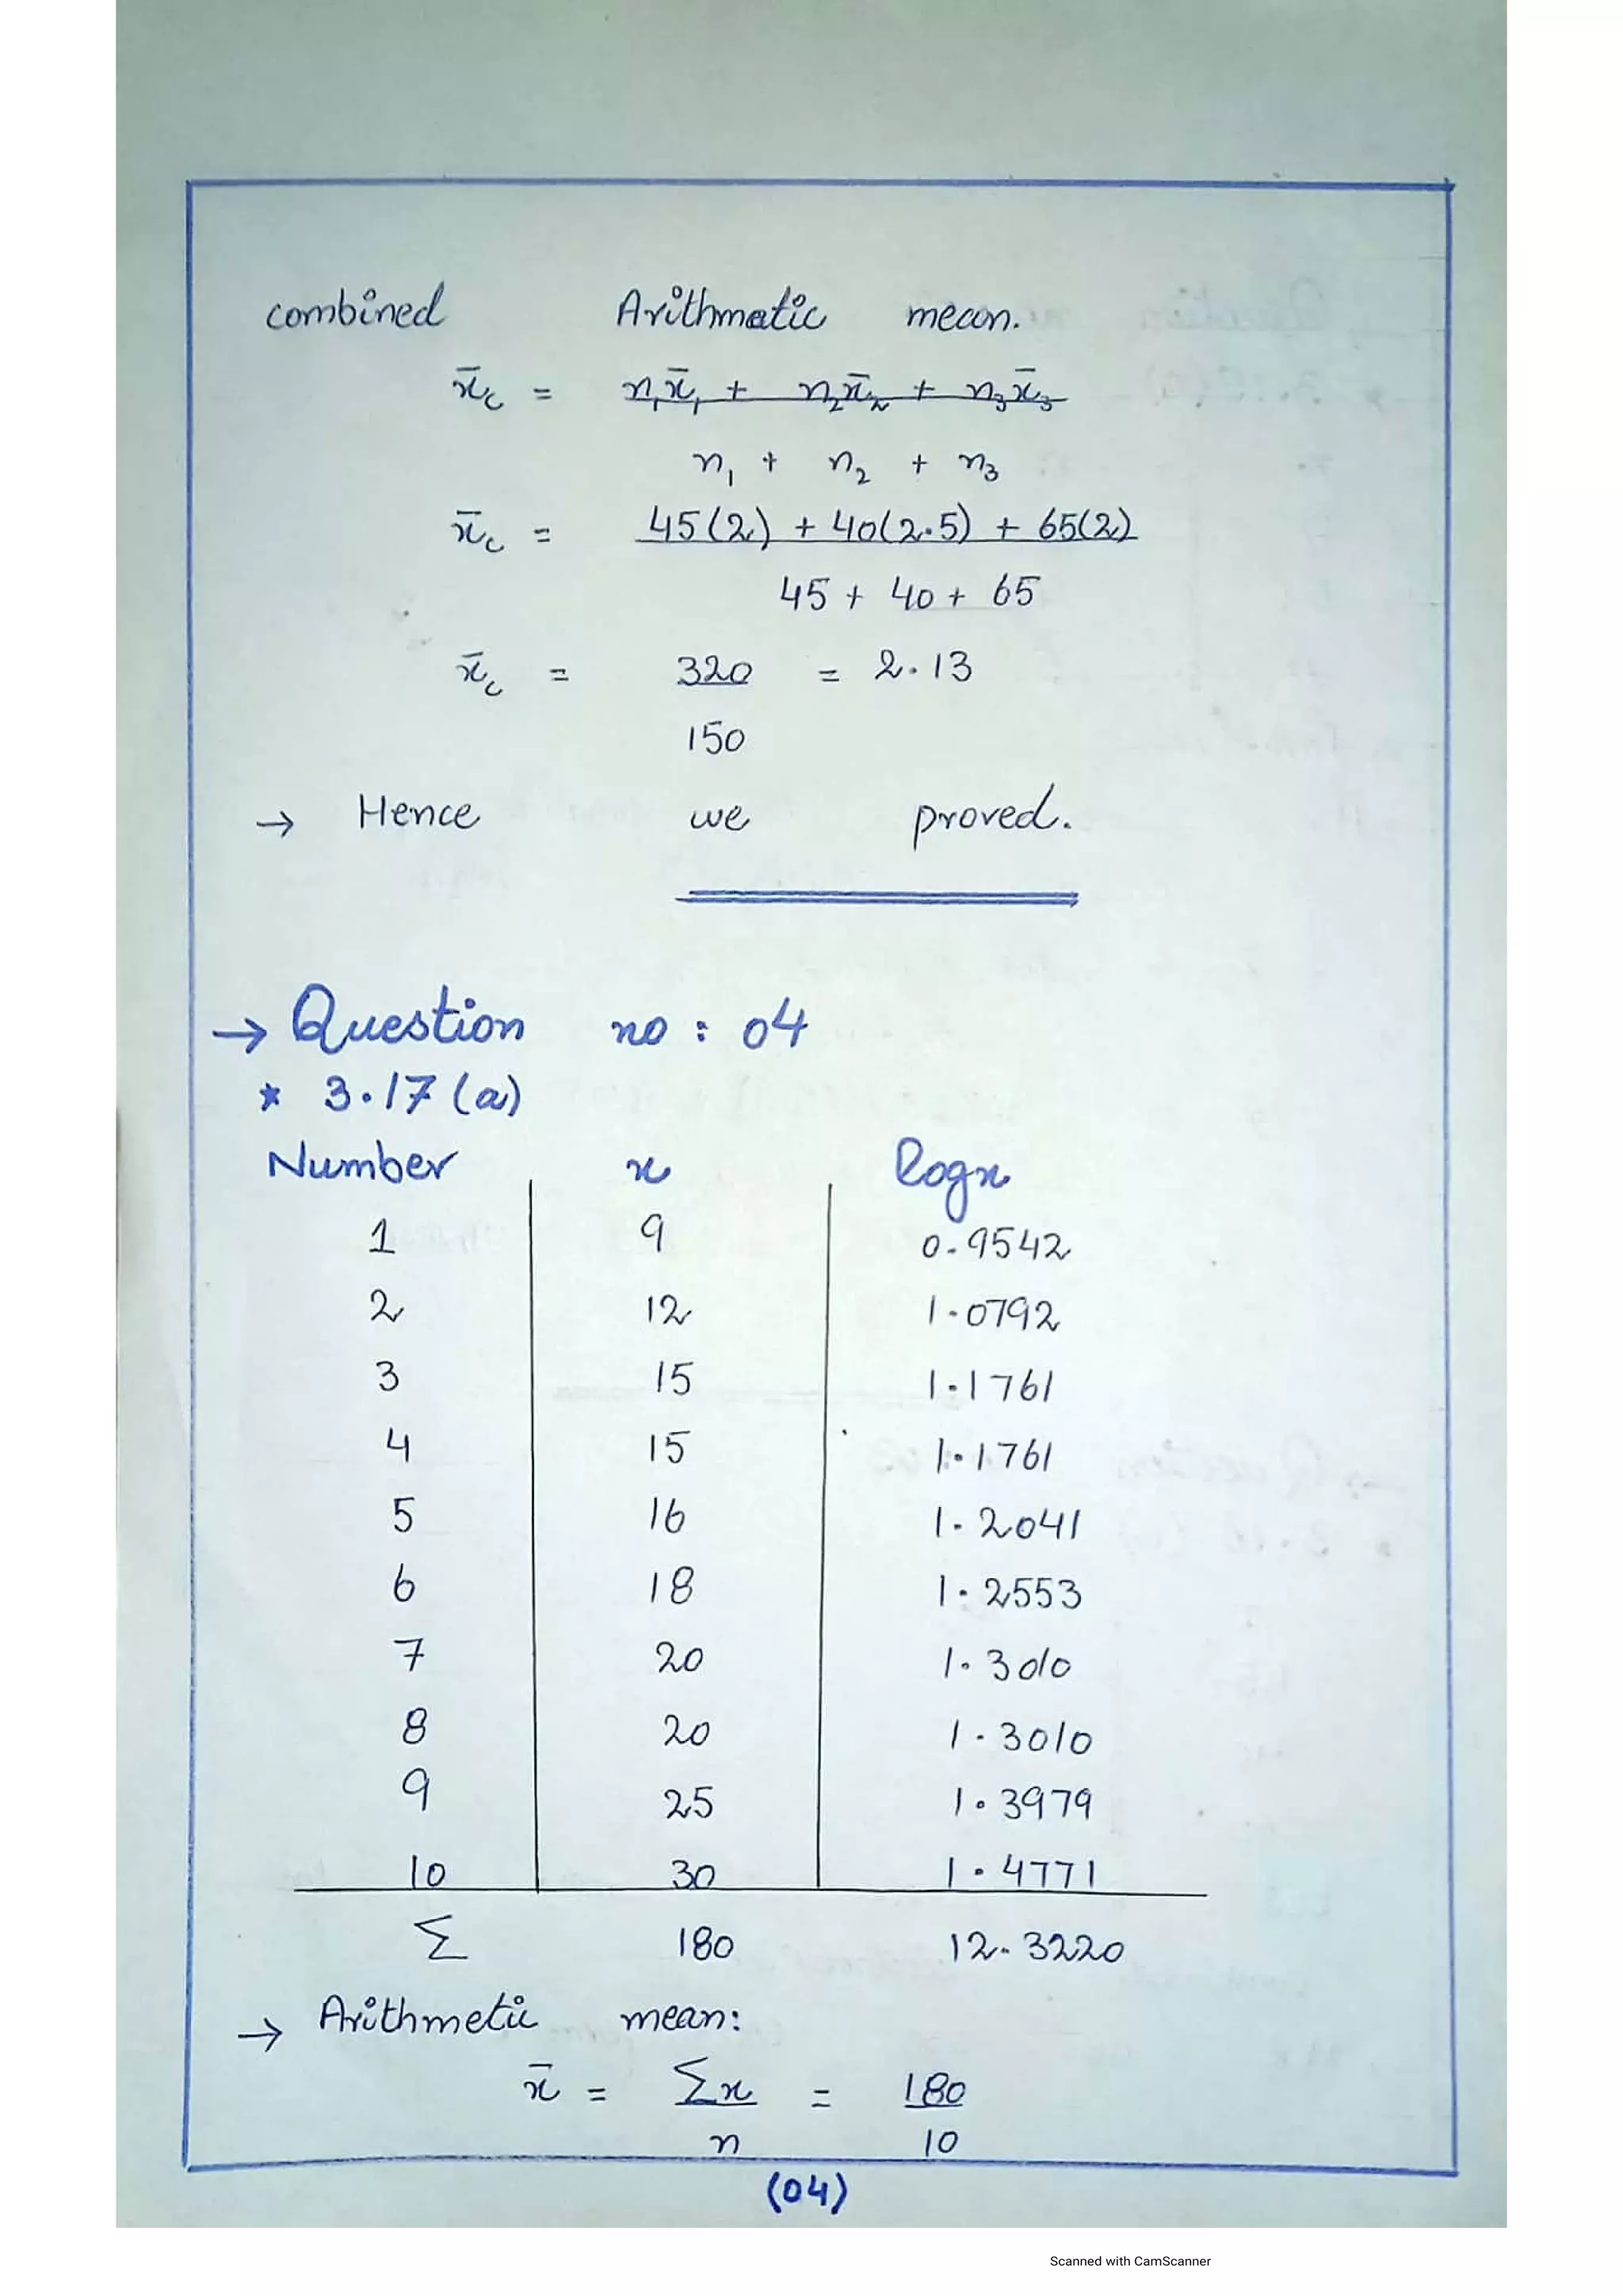 combined Arithmatic mean.
x̄c = n₁x̄₁ + n₂x̄₂ + n₃x̄₃
n₁ + n₂ + n₃
x̄c = 45(2) + 40(2.5) + 65(2)
45 + 40 + 65
x̄c = 320 = 2.13
150
→ Hence we proved.
→ Question no : 04
* 3.17 (a)
Number x logx
1 9 0.9542
2 12 1.0792
3 15 1.1761
4 15 1.1761
5 16 1.2041
6 18 1.2553
7 20 1.3010
8 20 1.3010
9 25 1.3979
10 30 1.4771
Σ 180 12.3220
→ Arithmetic mean:
x̄ = Σx = 180
n 10
(04)
Scanned with CamScanner